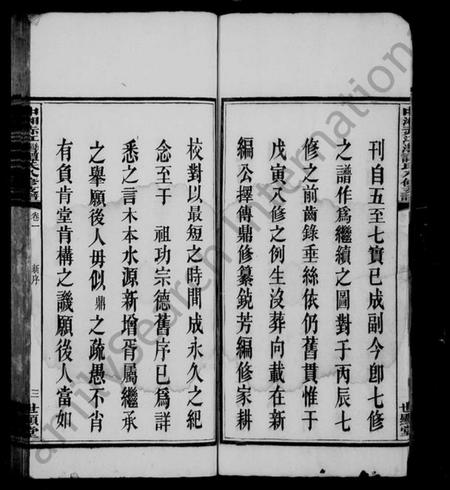 刊自五至七實已成副今卽七修
之譜作爲繼續之圖對于丙辰七
修之前齒錄垂絲依仍舊貫惟于
戊寅八修之例生沒葬向載在新
編公擇傳鼎修纂銃芳編修家耕
校對以最短之時間成永久之紀
念至于 祖功宗德舊序已爲詳
悉之言木本水源新增胥屬繼承
之舉願後人毋似鼎之疏愚不肖
有負肯堂肯構之譏願後人當如
卷一
新序
三
世顯堂
世顯堂
FamilySearch International